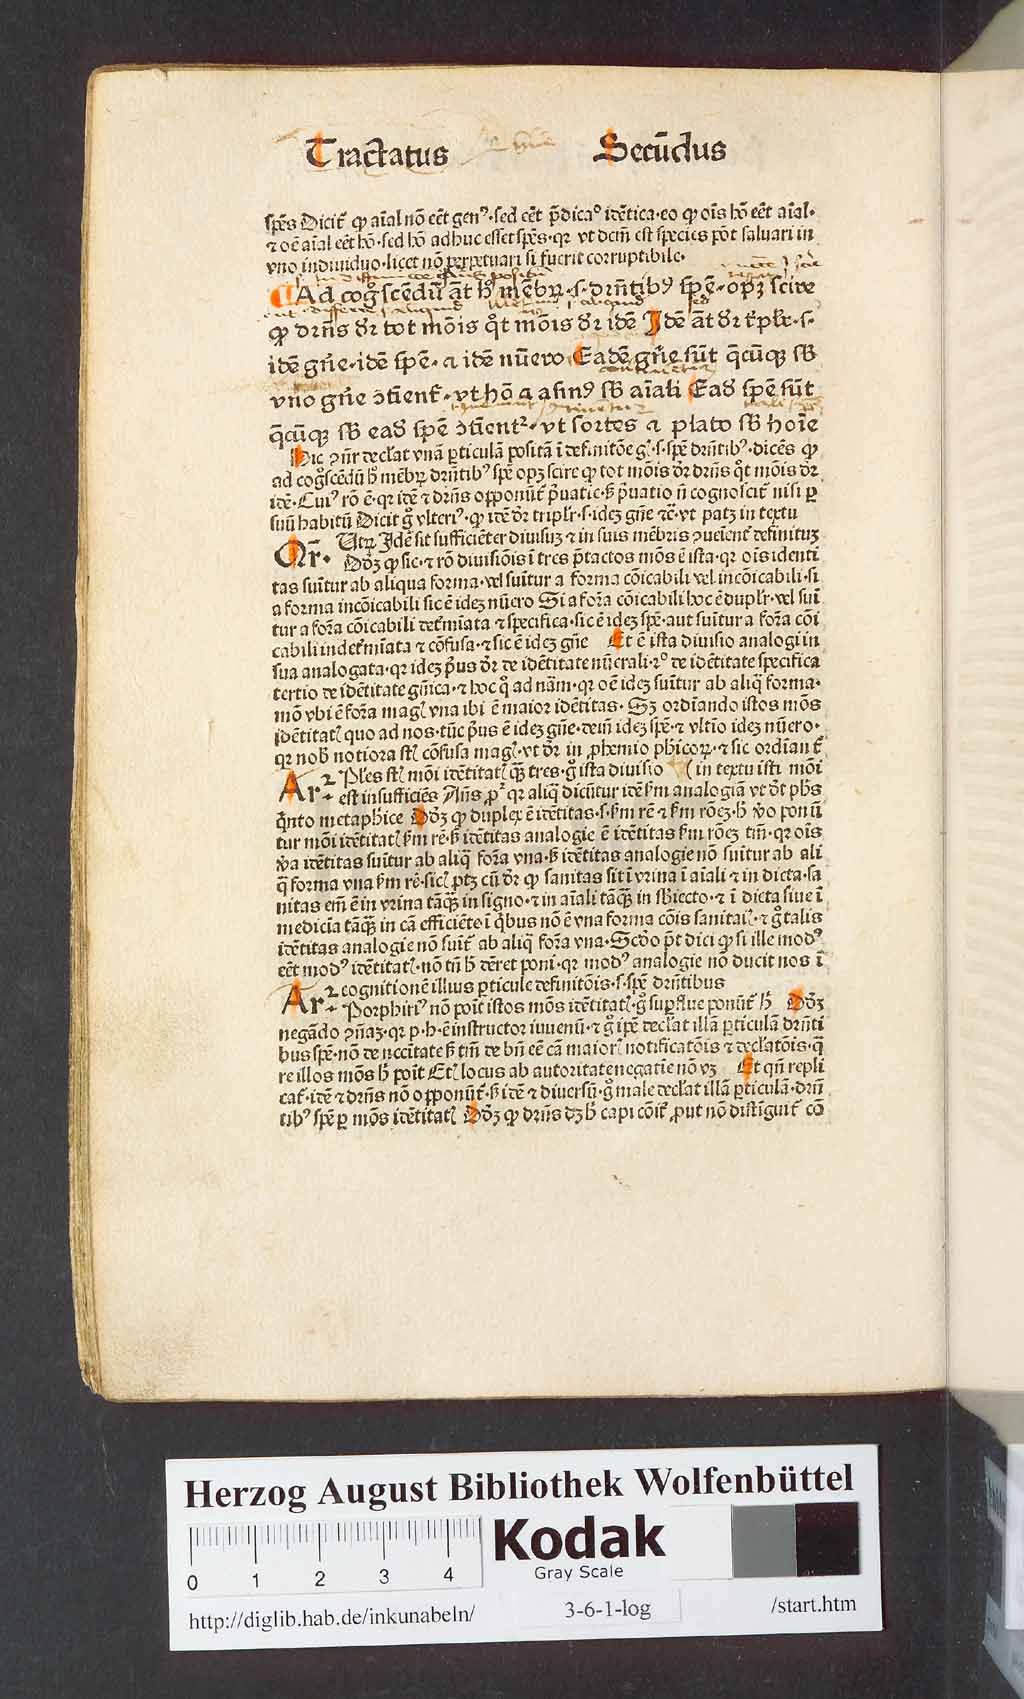 Tractatus Secūdus
sp̄es Dicit᷑ ꝙ aīal nō eēt genꝰ · sed eēt p̄dicaᵒ idētica · eo ꝙ oīs hō eēt aīal ·
⁊ oē aīal eēt hō · sed hō adhuc esset sp̄es · qꝛ vt dem̄ est species pōt saluari in
vno indiuiduo · licet nō ꝑpetuari si fuerit corruptibile ·
Ad cogͦscēdū āt hͦ mēbꝝ · s · drn̄tibꝰ spē · opꝫ scire
ꝙ drn̄s dr̄ tot mōis qͦt mōis dr̄ idē Idē āt dr̄ tͥplr̄ · s ·
idē gn̄e · idē spē · ⁊ idē nūero Eadē gn̄e sūt q̄cūqꝫ sb̄
vno gn̄e ꝯtient᷑ · vt hō ⁊ asinꝰ sb̄ aīali Ead̄ spē sūt
q̄cūqꝫ sb̄ ead̄ spē ꝯtient᷑ · vt sortes ⁊ plato sb̄ hoīe
Hic ꝯn̄r declat vnā ꝑticulā positā ī definitōe gͥ · s · spē drn̄tibꝰ · dicēs ꝙ
ad cogͦscēdū hͦ mēbꝝ drn̄tibꝰ spē opꝫ scire ꝙ tot mōis dr̄ drn̄s qͦt mōis dr̄
idē · Cuiꝰ rō ē · qꝛ idē ⁊ drn̄s opponūt᷑ pͥuatie · sꝫ pͥuatio n̄ cognoscit᷑ nisi ꝑ
suū habitū Dicit gͦ vlteriꝰ · ꝙ idē dr̄ triplr̄ · s · ideꝫ gn̄e ⁊c̄ · vt patꝫ in textu
Qr̄ · Utꝝ Idē sit sufficiēter diuisuꝫ ⁊ in suis mēbris ꝯueiēnt᷑ definituꝫ
Dōꝫ ꝙ sic · ⁊ rō diuisiōis ī tres p̄tactos mōs ē ista · qꝛ oīs identi
tas suītur ab aliqua forma · vel suītur a forma cōicabili vel incōicabili · si
a forma incōicabili sic ē ideꝫ nūero Si a foꝛa cōicabili hoc ē duplr̄ · vel suī
tur a foꝛa cōicabili determīata ⁊ specifica · sic ē ideꝫ spē · aut suītur a foꝛa cōi
cabili indetermīata ⁊ cōfusa · ⁊ sic ē ideꝫ gn̄e Et ē ista diuisio analogi in
sua analogata · qꝛ ideꝫ pͥus dr̄ de idētitate nūerali · 2ᵒ de idētitate specifica
tertio de idētitate gn̄ica · ⁊ hoc qͦ ad nām · qꝛ oē ideꝫ suītur ab aliq̄ forma ·
mō vbi ē foꝛa magꝭ vna ibi ē maior idētitas · Sꝫ ordīando istos mōs
idētitatꝭ quo ad nos · tūc pͥus ē ideꝫ gn̄e · dein̄ ideꝫ spē · ⁊ vltīo ideꝫ nūero ·
qꝛ nob̄ notiora st̄ cōfusa magꝭ · vt dr̄ in ꝓhemio phicoꝝ · ⁊ sic ordīant᷑
Ar² · Pl̄es st̄ mōi idētitatꝭ qꝫ tres · gͦ ista diuisio in textu isti mōi
est insufficiēs Añs pꝫ qꝛ aliq̄ dicūtur idē fm̄ analogiā vt dt̄ phs
qͥnto metaphice Dōꝫ ꝙ duplex ē idētitas · s · fm̄ rē ⁊ fm̄ rōeꝫ · hͥ vͦo ponū
tur mōi idētitatꝭ fm̄ rē · sꝫ idētitas analogie ē idētitas fm̄ rōeꝫ tm̄ · qꝛ oīs
vͣa idētitas suītur ab aliq̄ foꝛa vna · sꝫ idētitas analogie nō suītur ab ali
q̄ forma vna fm̄ rē · sicꝭ ptꝫ cū dr̄ ꝙ sanitas sit ī vrina ī aīali ⁊ in dicta · sa
nitas em̄ ē in vrina tāqꝫ in signo · ⁊ in aīali tāqꝫ in sb̄iecto · ⁊ ī dicta siue ī
medicīa tāqꝫ in cā efficiēte · ī qͥbus nō ē vna forma cōis sanitatꝭ · ⁊ gͦ talis
idētitas analogie nō suīt᷑ ab aliq̄ foꝛa vna · Scd̄o pt̄ dici ꝙ si ille modꝰ
eēt modꝰ idētitatꝭ · nō tn̄ hͥ deret poni · qꝛ modꝰ analogie nō ducit nos ī
cognitionē illius ꝑticule definitōis · s · spē drn̄tibus
Ar² · Porphiriꝰ nō poīt istos mōs idētitatꝭ · gͦ suꝑflue ponūt᷑ hͥ Dōꝫ
negādo ꝯn̄aꝫ · qꝛ p · h · ē instructor iuuenū · ⁊ gͦ ip̄e declat illā ꝑticulā drn̄ti
bus spē · nō de nccitate sꝫ tm̄ de bn̄ eē cā maiorꝭ notificatōis ⁊ declatōis · q̄
re illos mōs hͥ poīt Etꝭ locus ab autoritate negatie nō vꝫ Et qn̄ repli
cat᷑ · idē ⁊ drn̄s nō opponūt᷑ · sꝫ idē ⁊ diuersū · gͦ male declat illā ꝑticulā · drn̄
tibꝰ spē ꝑ mōs idētitatꝭ Dōꝫ ꝙ drn̄s dꝫ hͥ capi cōit᷑ ꝓut nō distiguit᷑ cō
Herzog August Bibliothek Wolfenbüttel
Kodak
Gray Scale
0 1 2 3 4
http://diglib.hab.de/inkunabeln/ 3-6-1-log /start.htm